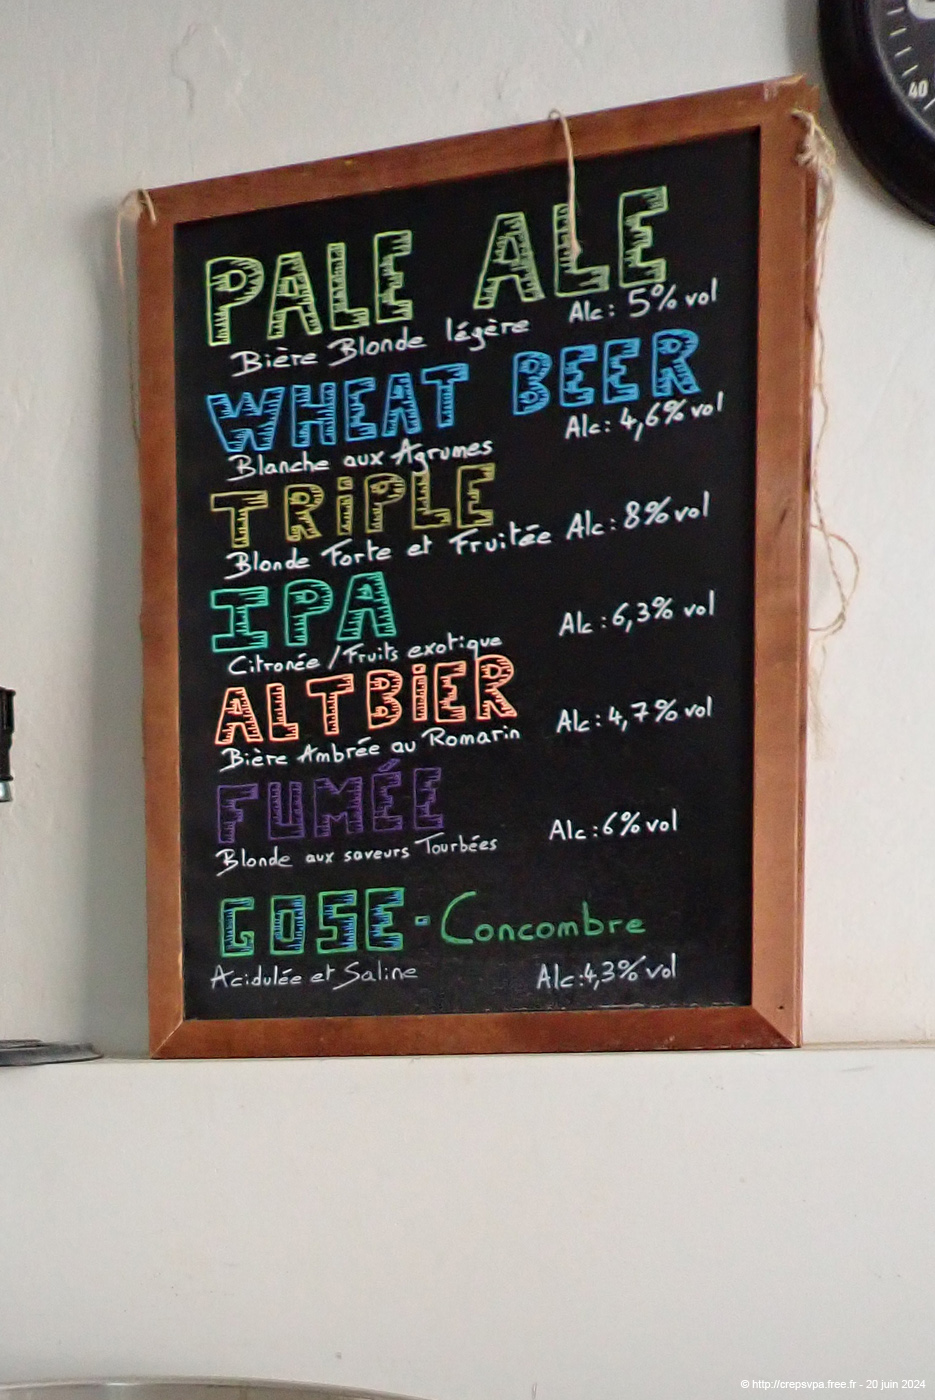 40
PALE ALE
Bière Blonde légère Alc: 5% vol
WHEAT BEER
Blanche aux Agrumes Alc: 4,6% vol
TRiPLE
Blonde Forte et Fruitée Alc: 8% vol
IPA
Citronée / Fruits exotique Alc: 6,3% vol
ALTBiER
Bière Ambrée au Romarin Alc: 4,7% vol
FUMÉE
Blonde aux saveurs Tourbées Alc: 6% vol
GOSE - Concombre
Acidulée et Saline Alc: 4,3% vol
© http://crepsvpa.free.fr - 20 juin 2024